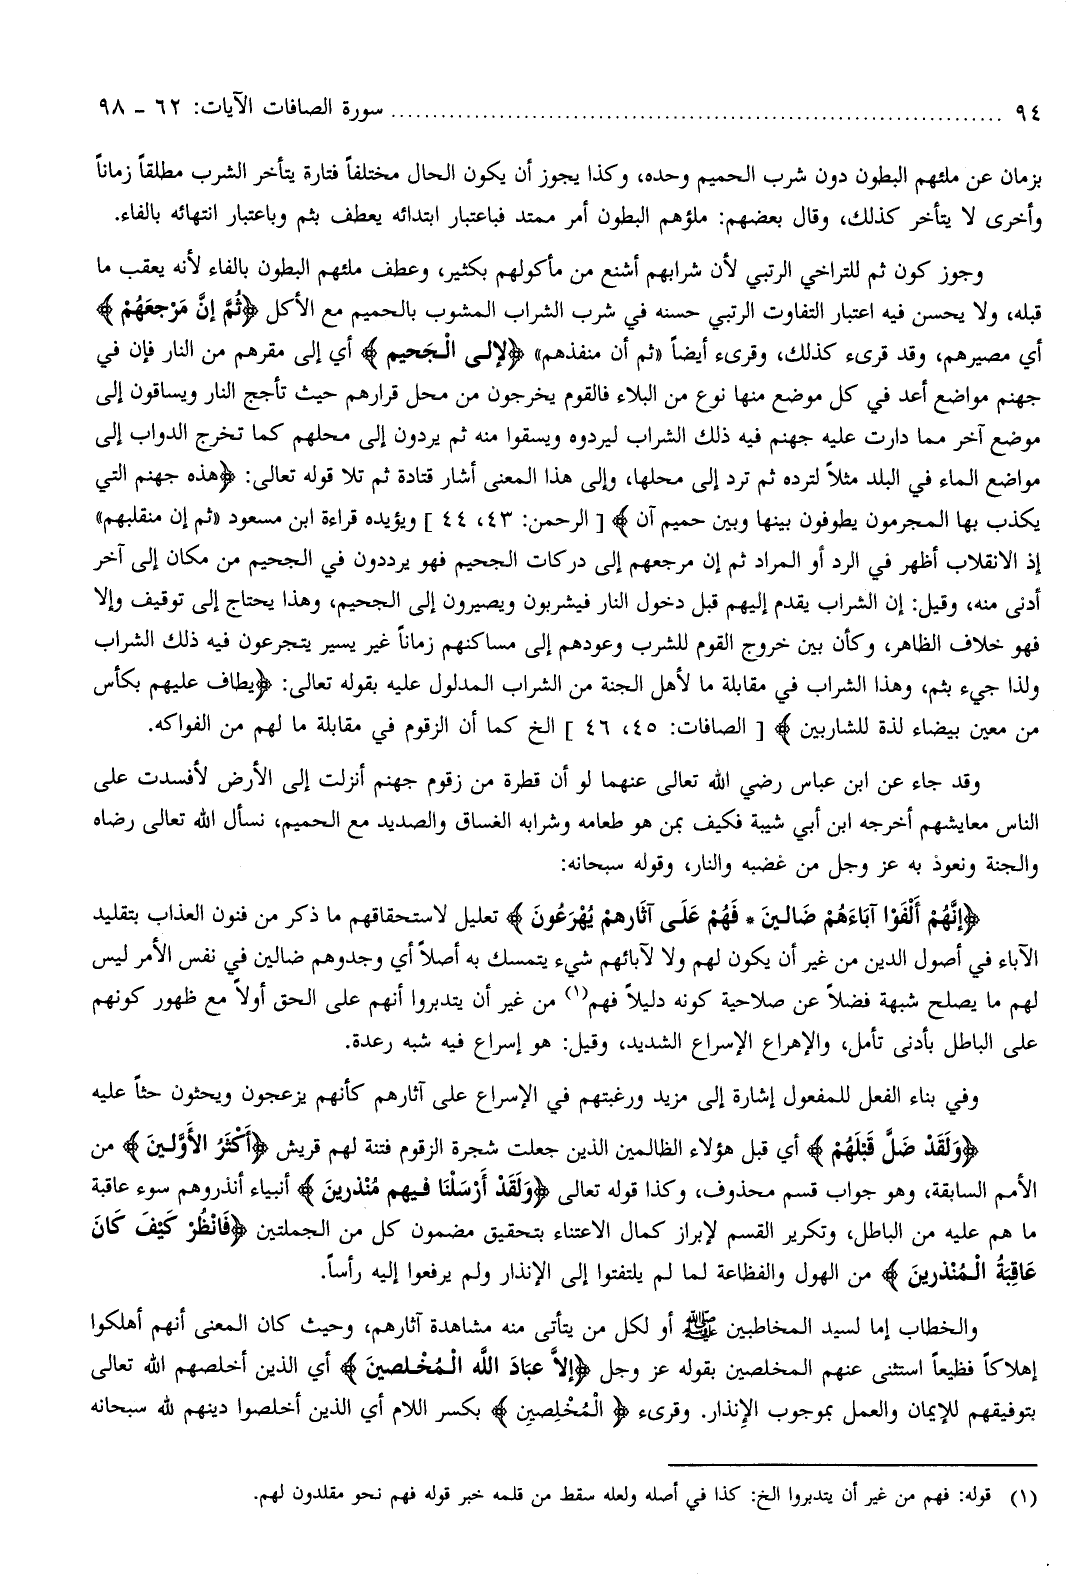 ٩٤ ........................................................................ سورة الصافات الآيات: ٦٢ ـ ٩٨
بزمان عن ملئهم البطون دون شرب الحميم وحده، وكذا يجوز أن يكون الحال مختلفاً فتارة يتأخر الشرب مطلقاً زماناً
وأخرى لا يتأخر كذلك، وقال بعضهم: ملؤهم البطون أمر ممتد فباعتبار ابتدائه يعطف بثم وباعتبار انتهائه بالفاء.
وجوز كون ثم للتراخي الرتبي لأن شرابهم أشنع من مأكولهم بكثير، وعطف ملئهم البطون بالفاء لأنه يعقب ما
قبله، ولا يحسن فيه اعتبار التفاوت الرتبي حسنه في شرب الشراب المشوب بالحميم مع الأكل ﴿ثُمَّ إنَّ مَرْجعَهُمْ﴾
أي مصيرهم، وقد قرىء كذلك، وقرىء أيضاً «ثم أن منفذهم» ﴿لإلى الْجَحيم﴾ أي إلى مقرهم من النار فإن في
جهنم مواضع أعد في كل موضع منها نوع من البلاء فالقوم يخرجون من محل قرارهم حيث تأجج النار ويساقون إلى
موضع آخر مما دارت عليه جهنم فيه ذلك الشراب ليردوه ويسقوا منه ثم يردون إلى محلهم كما تخرج الدواب إلى
مواضع الماء في البلد مثلاً لترده ثم ترد إلى محلها، وإلى هذا المعنى أشار قتادة ثم تلا قوله تعالى: ﴿هذه جهنم التي
يكذب بها المجرمون يطوفون بينها وبين حميم آن﴾ [ الرحمن: ٤٣، ٤٤ ] ويؤيده قراءة ابن مسعود «ثم إن منقلبهم»
إذ الانقلاب أظهر في الرد أو المراد ثم إن مرجعهم إلى دركات الجحيم فهو يرددون في الجحيم من مكان إلى آخر
أدنى منه، وقيل: إن الشراب يقدم إليهم قبل دخول النار فيشربون ويصيرون إلى الجحيم، وهذا يحتاج إلى توقيف وإلا
فهو خلاف الظاهر، وكأن بين خروج القوم للشرب وعودهم إلى مساكنهم زماناً غير يسير يتجرعون فيه ذلك الشراب
ولذا جيء بثم، وهذا الشراب في مقابلة ما لأهل الجنة من الشراب المدلول عليه بقوله تعالى: ﴿يطاف عليهم بكأس
من معين بيضاء لذة للشاربين﴾ [ الصافات: ٤٥، ٤٦ ] الخ كما أن الزقوم في مقابلة ما لهم من الفواكه.
وقد جاء عن ابن عباس رضي الله تعالى عنهما لو أن قطرة من زقوم جهنم أنزلت إلى الأرض لأفسدت على
الناس معايشهم أخرجه ابن أبي شيبة فكيف بمن هو طعامه وشرابه الغساق والصديد مع الحميم، نسأل الله تعالى رضاه
والجنة ونعوذ به عز وجل من غضبه والنار، وقوله سبحانه:
﴿إنَّهُمْ أَلْفَوْا آبَاءَهُمْ ضَالينَ * فَهُمْ عَلَى آثَارهمْ يُهْرَعُونَ﴾ تعليل لاستحقاقهم ما ذكر من فنون العذاب بتقليد
الآباء في أصول الدين من غير أن يكون لهم ولا لآبائهم شيء يتمسك به أصلاً أي وجدوهم ضالين في نفس الأمر ليس
لهم ما يصلح شبهة فضلاً عن صلاحية كونه دليلاً فهم(١) من غير أن يتدبروا أنهم على الحق أولاً مع ظهور كونهم
على الباطل بأدنى تأمل، والإهراع الإسراع الشديد، وقيل: هو إسراع فيه شبه رعدة.
وفي بناء الفعل للمفعول إشارة إلى مزيد ورغبتهم في الإسراع على آثارهم كأنهم يزعجون ويحثون حثاً عليه
﴿وَلَقَدْ ضَلَّ قَبْلَهُمْ﴾ أي قبل هؤلاء الظالمين الذين جعلت شجرة الزقوم فتنة لهم قريش ﴿أَكْثَرُ الأَوَّلينَ﴾ من
الأمم السابقة، وهو جواب قسم محذوف، وكذا قوله تعالى ﴿وَلَقَدْ أَرْسَلْنَا فيهم مُنْذرينَ﴾ أنبياء أنذروهم سوء عاقبة
ما هم عليه من الباطل، وتكرير القسم لإبراز كمال الاعتناء بتحقيق مضمون كل من الجملتين ﴿فَانْظُرْ كَيْفَ كَانَ
عَاقبَةُ الْمُنْذرينَ﴾ من الهول والفظاعة لما لم يلتفتوا إلى الإنذار ولم يرفعوا إليه رأساً.
والخطاب إما لسيد المخاطبين ﷺ أو لكل من يتأتى منه مشاهدة آثارهم، وحيث كان المعنى أنهم أهلكوا
إهلاكاً فظيعاً استثنى عنهم المخلصين بقوله عز وجل ﴿إلاَّ عبَادَ اللَّه الْمُخْلصينَ﴾ أي الذين أخلصهم الله تعالى
بتوفيقهم للإيمان والعمل بموجوب الإنذار. وقرىء ﴿الْمُخْلِصِين﴾ بكسر اللام أي الذين أخلصوا دينهم لله سبحانه
(١) قوله: فهم من غير أن يتدبروا الخ: كذا في أصله ولعله سقط من قلمه خبر قوله فهم نحو مقلدون لهم.